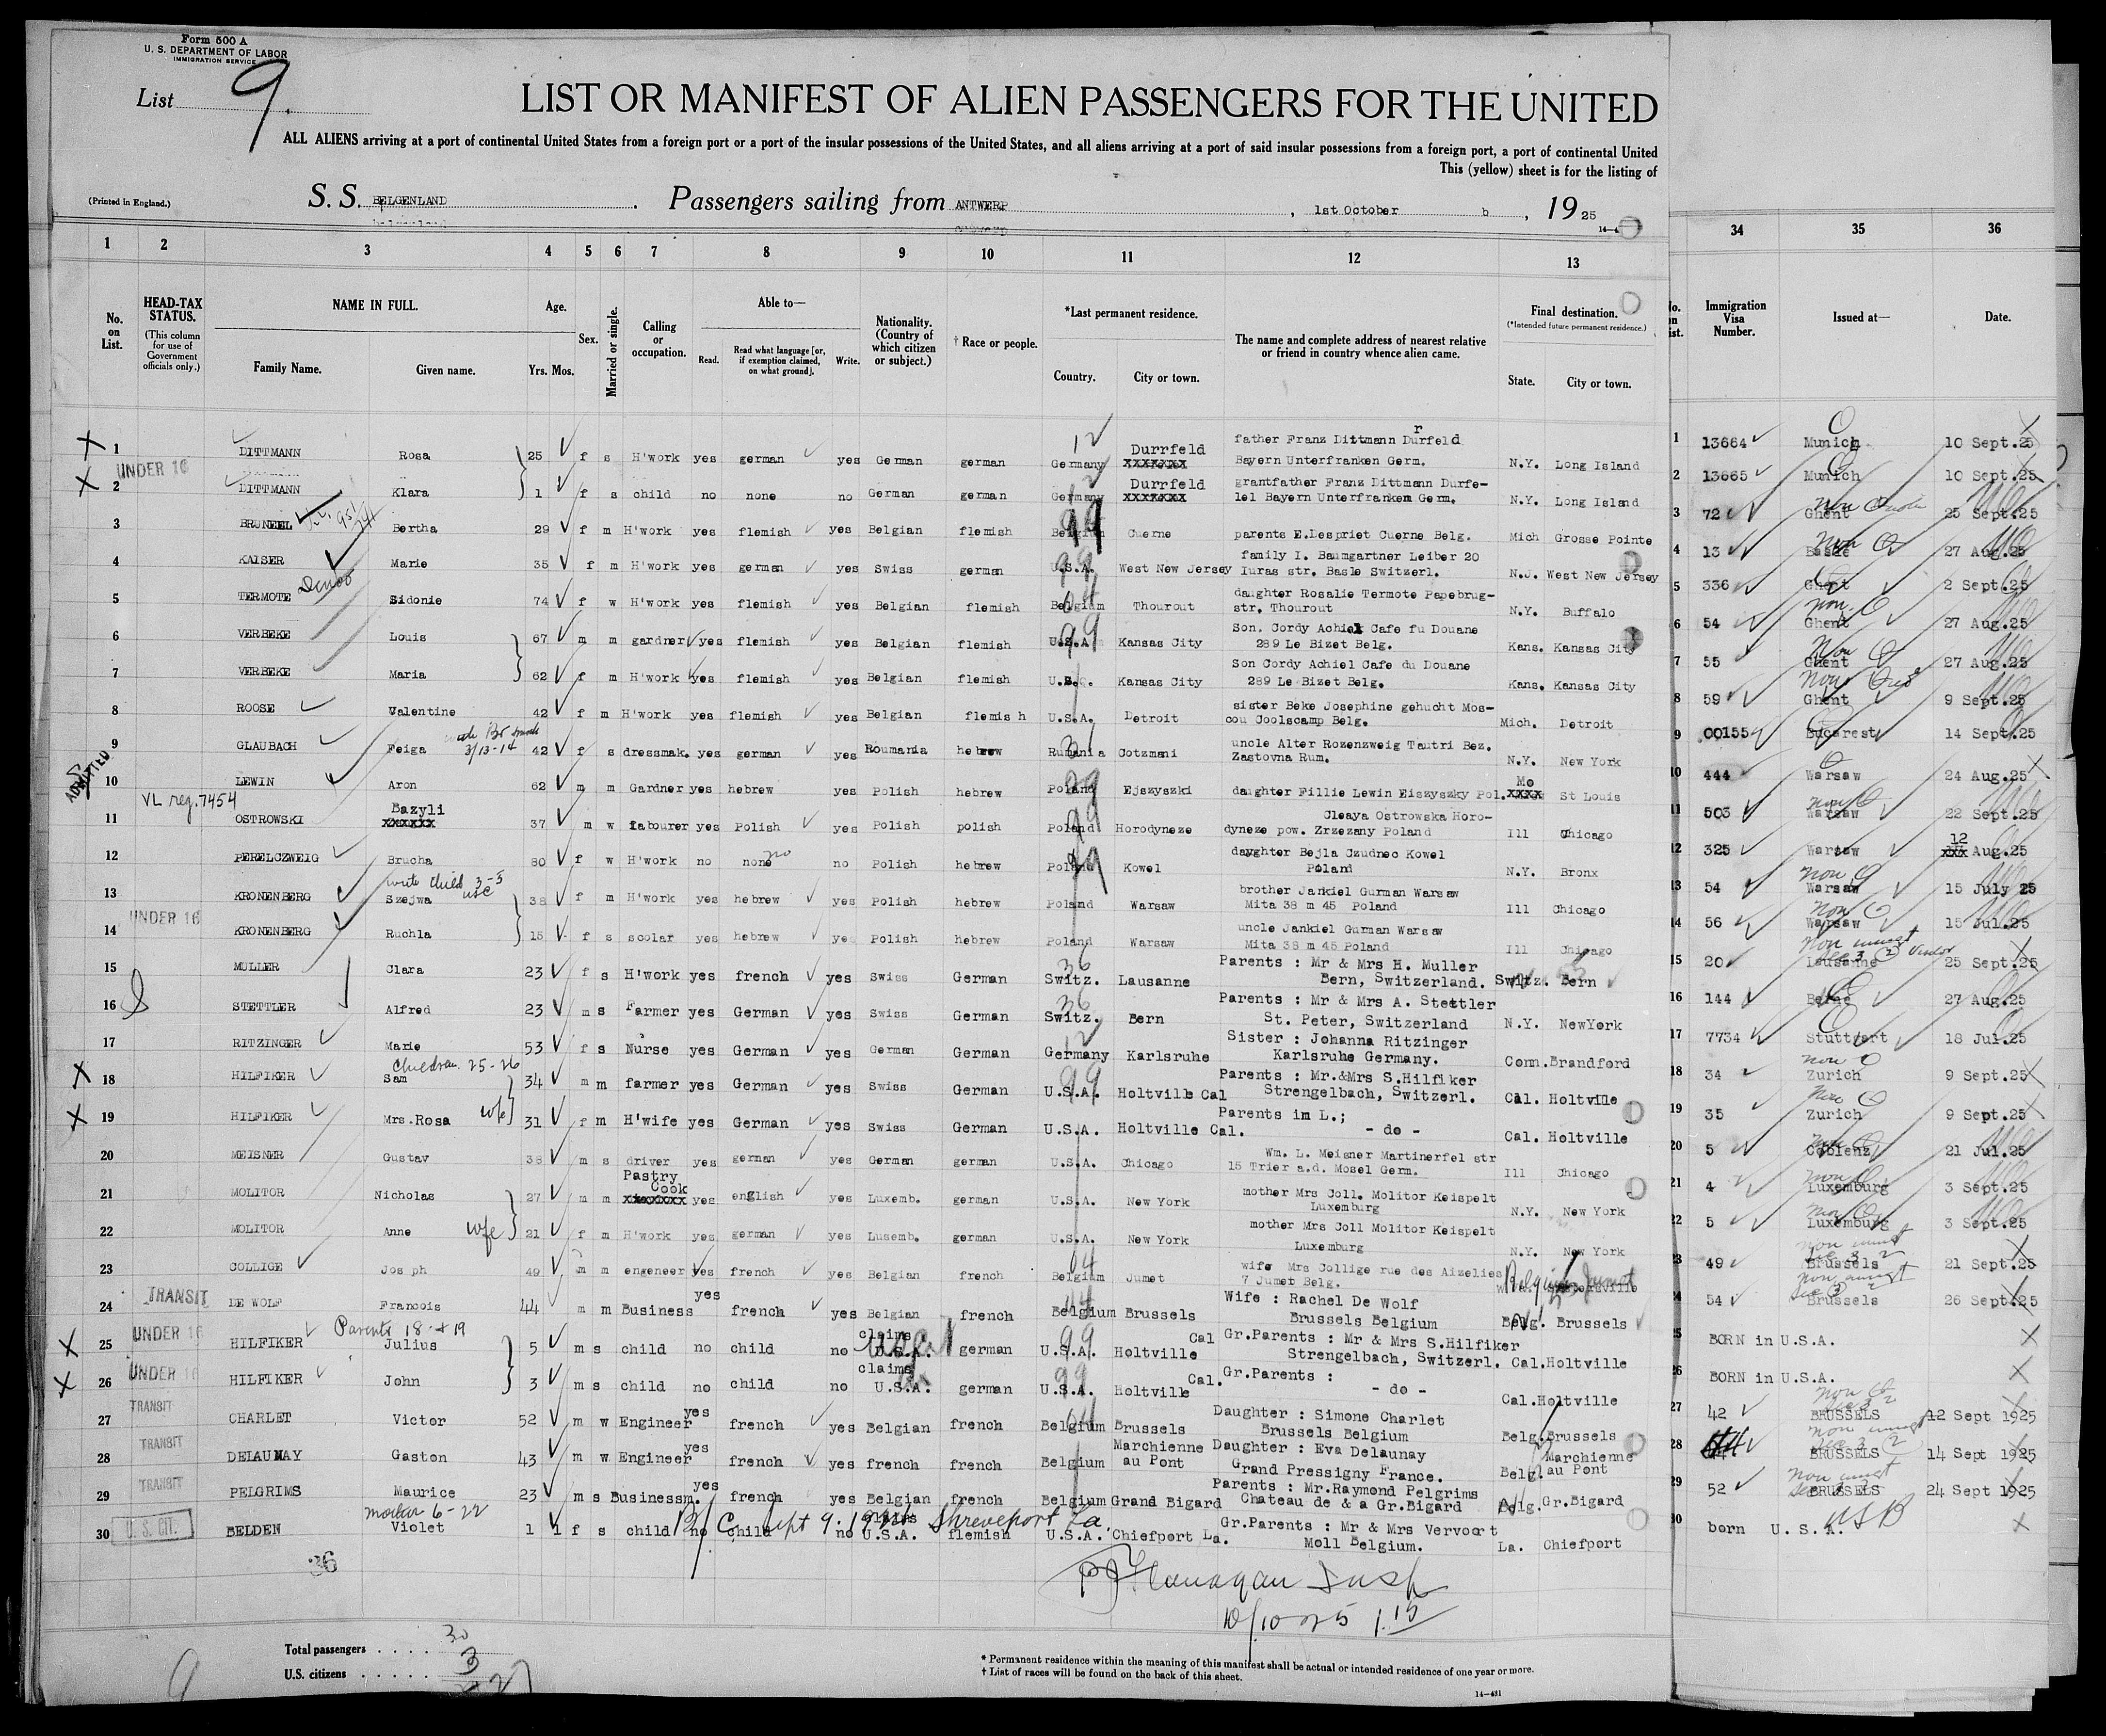 Form 500 A
U. S. DEPARTMENT OF LABOR
IMMIGRATION SERVICE
List 9.
LIST OR MANIFEST OF ALIEN PASSENGERS FOR THE UNITED
ALL ALIENS arriving at a port of continental United States from a foreign port or a port of the insular possessions of the United States, and all aliens arriving at a port of said insular possessions from a foreign port, a port of continental United
This (yellow) sheet is for the listing of
(Printed in England.) S. S. BELGENLAND . Passengers sailing from ANTWERP , 1st October , 19 25
1 2 3 4 5 6 7 8 9 10 11 12 13 34 35 36
No. on List. HEAD-TAX STATUS. (This column for use of Government officials only.) NAME IN FULL. Family Name. Given name. Age. Yrs. Mos. Sex. Married or single. Calling or occupation. Able to— Read. Read what language [or, if exemption claimed, on what ground]. Write. Nationality. (Country of which citizen or subject.) † Race or people. *Last permanent residence. Country. City or town. The name and complete address of nearest relative or friend in country whence alien came. Final destination. (*Intended future permanent residence.) State. City or town. Immigration Visa Number. Issued at— Date.
1 DITTMANN Rosa 25 f s H'work yes german yes German german Germany Durrfeld xxxxxxx father Franz Dittmann Durfeld Bayern Unterfranken Germ. N.Y. Long Island 13664 Munich 10 Sept.25
UNDER 16
2 DITTMANN Klara 1 f s child no none no German german Germany Durrfeld xxxxxxx grantfather Franz Dittmann Durfe- lel Bayern Unterfranken Germ. N.Y. Long Island 13665 Munich 10 Sept.25
3 BRUNEEL Bertha 29 f m H'work yes flemish yes Belgian flemish Belgium Cuerne parents E.Despriet Cuerne Belg. Mich Grosse Pointe 72 Ghent 25 Sept.25
4 KAISER Marie 35 f m H'work yes german yes Swiss german U.S.A. West New Jersey family I. Baumgartner Leiber 20 Iuras str. Basle Switzerl. N.J. West New Jersey 13 Basle 27 Aug.25
5 TERMOTE Sidonie 74 f w H'work yes flemish yes Belgian flemish Belgium Thourout daughter Rosalie Termote Papebrug- str. Thourout N.Y. Buffalo 336 Ghent 2 Sept.25
6 VERBEKE Louis 67 m m gardner yes flemish yes Belgian flemish U.S.A. Kansas City Son. Cordy Achiel Cafe fu Douane 289 Le Bizet Belg. Kans. Kansas City 54 Ghent 27 Aug.25
7 VERBEKE Maria 62 f m H'work yes flemish yes Belgian flemish Kansas City Son Cordy Achiel Cafe du Douane 289 Le Bizet Belg. Kans. Kansas City 55 Ghent 27 Aug.25
8 ROOSE Valentine 42 f m H'work yes flemish yes Belgian flemis h U.S.A. Detroit sister Beke Josephine gehucht Mos- cou Coolscamp Belg. Mich. Detroit 59 Ghent 9 Sept.25
9 GLAUBACH Feiga 3/13-14 42 f s dressmak. yes german yes Roumania hebrew Rumania Cotzmani uncle Alter Rozenzweig Tautri Bez. Zastovna Rum. N.Y. New York 00155 Bucarest 14 Sept.25
ADMITTED
10 LEWIN Aron 62 m m Gardner yes hebrew yes Polish hebrew Poland Ejszyszki daughter Fillie Lewin Eiszyszky Pol. Mo xxxx St Louis 444 Warsaw 24 Aug.25
VL reg. 7454
11 OSTROWSKI Bazyli xxxxxx 37 m w labourer yes Polish yes Polish polish Poland Horodyneze Cleaya Ostrowska Horo- dyneze pow. Zrzezany Poland Ill Chicago 503 Warsaw 22 Sept.25
12 PERELCZWEIG Brucha 80 f w H'work no none no no Polish hebrew Poland Kowel dayghter Bejla Czudnec Kowel Poland N.Y. Bronx 325 Warsaw 12 xxx Aug.25
13 KRONENBERG Szejwa 38 f m H'work yes hebrew yes Polish hebrew Poland Warsaw brother Jankiel Gurman Warsaw Mita 38 m 45 Poland Ill Chicago 54 Warsaw 15 July 25
UNDER 16
14 KRONENBERG Ruchla 15 f s scolar yes hebrew yes Polish hebrew Poland Warsaw uncle Jankiel Gurman Warsaw Mita 38 m 45 Poland Ill Chicago 56 Warsaw 15 Jul.25
15 MULLER Clara 23 f s H'work yes french yes Swiss German Switz. Lausanne Parents : Mr & Mrs H. Muller Bern, Switzerland. Switz. Bern 20 Lausanne 25 Sept.25
16 STETTLER Alfred 23 m s Farmer yes German yes Swiss German Switz. Bern Parents : Mr & Mrs A. Stettler St. Peter, Switzerland N.Y. NewYork 144 Berne 27 Aug.25
17 RITZINGER Marie 53 f s Nurse yes German yes German German Germany Karlsruhe Sister : Johanna Ritzinger Karlsruhe Germany. Conn. Brandford 7734 Stuttgart 18 Jul.25
Children 25-26
18 HILFIKER Sam 34 m m farmer yes German yes Swiss German U.S.A. Holtville Cal Parents : Mr.&Mrs S.Hilfiker Strengelbach, Switzerl. Cal. Holtville 34 Zurich 9 Sept.25
19 HILFIKER Mrs.Rosa wfe 31 f m H'wife yes German yes Swiss German U.S.A. Holtville Cal. Parents im L.; - do - Cal. Holtville 35 Zurich 9 Sept.25
20 MEISNER Gustav 38 m s driver yes german yes German german U.S.A. Chicago Wm. L. Meisner Martinerfel str 15 Trier a.d. Mosel Germ. Ill Chicago 5 Coblenz 21 Jul.25
21 MOLITOR Nicholas 27 m m Pastry Cook xxxxxxx yes english yes Luxemb. german U.S.A. New York mother Mrs Coll. Molitor Keispelt Luxemburg N.Y. New York 4 Luxemburg 3 Sept.25
22 MOLITOR Anne wfe 21 f m H'work yes german yes Lusemb. german U.S.A. New York mother Mrs Coll Molitor Keispelt Luxemburg N.Y. New York 5 Luxemburg 3 Sept.25
23 COLLIGE Jos ph 49 m m engeneer yes french yes Belgian french Belgium Jumet wife Mrs Collige rue des Aizelies 7 Jumet Belg. Belgium Jumet 49 Brussels 21 Sept.25
TRANSIT
24 DE WOLF Francois 44 m m Business yes french yes Belgian french Belgium Brussels Wife : Rachel De Wolf Brussels Belgium Belg. Brussels 54 Brussels 26 Sept.25
UNDER 16 Parents 18 + 19
25 HILFIKER Julius 5 m s child no child no claims U.S.A. german U.S.A. Holtville Cal Gr.Parents : Mr & Mrs S.Hilfiker Strengelbach, Switzerl. Cal.Holtville BORN in U.S.A.
UNDER 16
26 HILFIKER John 3 m s child no child no claims U.S.A. german U.S.A. Holtville Cal. Gr.Parents : - do - Cal.Holtville BORN in U.S.A.
TRANSIT
27 CHARLET Victor 52 m w Engineer yes french yes Belgian french Belgium Brussels Daughter : Simone Charlet Brussels Belgium Belg. Brussels 42 BRUSSELS 12 Sept 1925
TRANSIT
28 DELAUNAY Gaston 43 m w Engineer yes french yes french french Belgium Marchienne au Pont Daughter : Eva Delaunay Grand Pressigny France. Belg. Marchienne au Pont 44 BRUSSELS 14 Sept 1925
TRANSIT
29 PELGRIMS Maurice 23 m s Businessm. yes french yes Belgian french Belgium Grand Bigard Parents : Mr.Raymond Pelgrims Chateau de & a Gr.Bigard Belg. Gr.Bigard 52 BRUSSELS 24 Sept 1925
U. S. CIT. mother 6-22
30 BELDEN Violet 1 1 f s child no child no U.S.A. flemish U.S.A. Chiefport La. Gr.Parents : Mr & Mrs Vervoort Moll Belgium. La. Chiefport born U. S. A.
Shreveport La.
36
Flanagan Insp
10/10 25 1.15
Total passengers . . . . 30
U.S. citizens . . . . . 3
27
* Permanent residence within the meaning of this manifest shall be actual or intended residence of one year or more.
† List of races will be found on the back of this sheet.
14—431